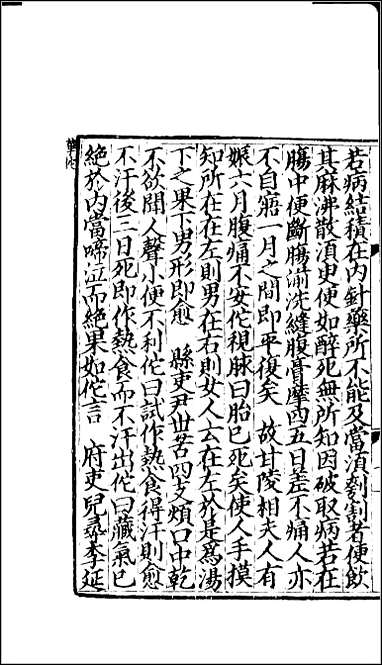 若病結積在内針藥所不能及當湏刳割者便飲
其麻沸散湏臾便如醉死無所知因破取病若在
腸中便斷腸湔洗縫腹膏摩四五日差不痛人亦
不自寤一月之間即平復矣 故甘陵相夫人有
娠六月腹痛不安佗視脉曰胎已死矣使人手摸
知所在在左則男在右則女人云在左於是爲湯
下之果下男形即愈 縣吏尹世苦四支煩口中乾
不欲聞人聲小便不利佗曰試作熱食得汗則愈
不汗後三日死即作熱食而不汗出佗曰藏氣已
絶於内當啼泣而絶果如佗言 府吏兒尋李延
華佗